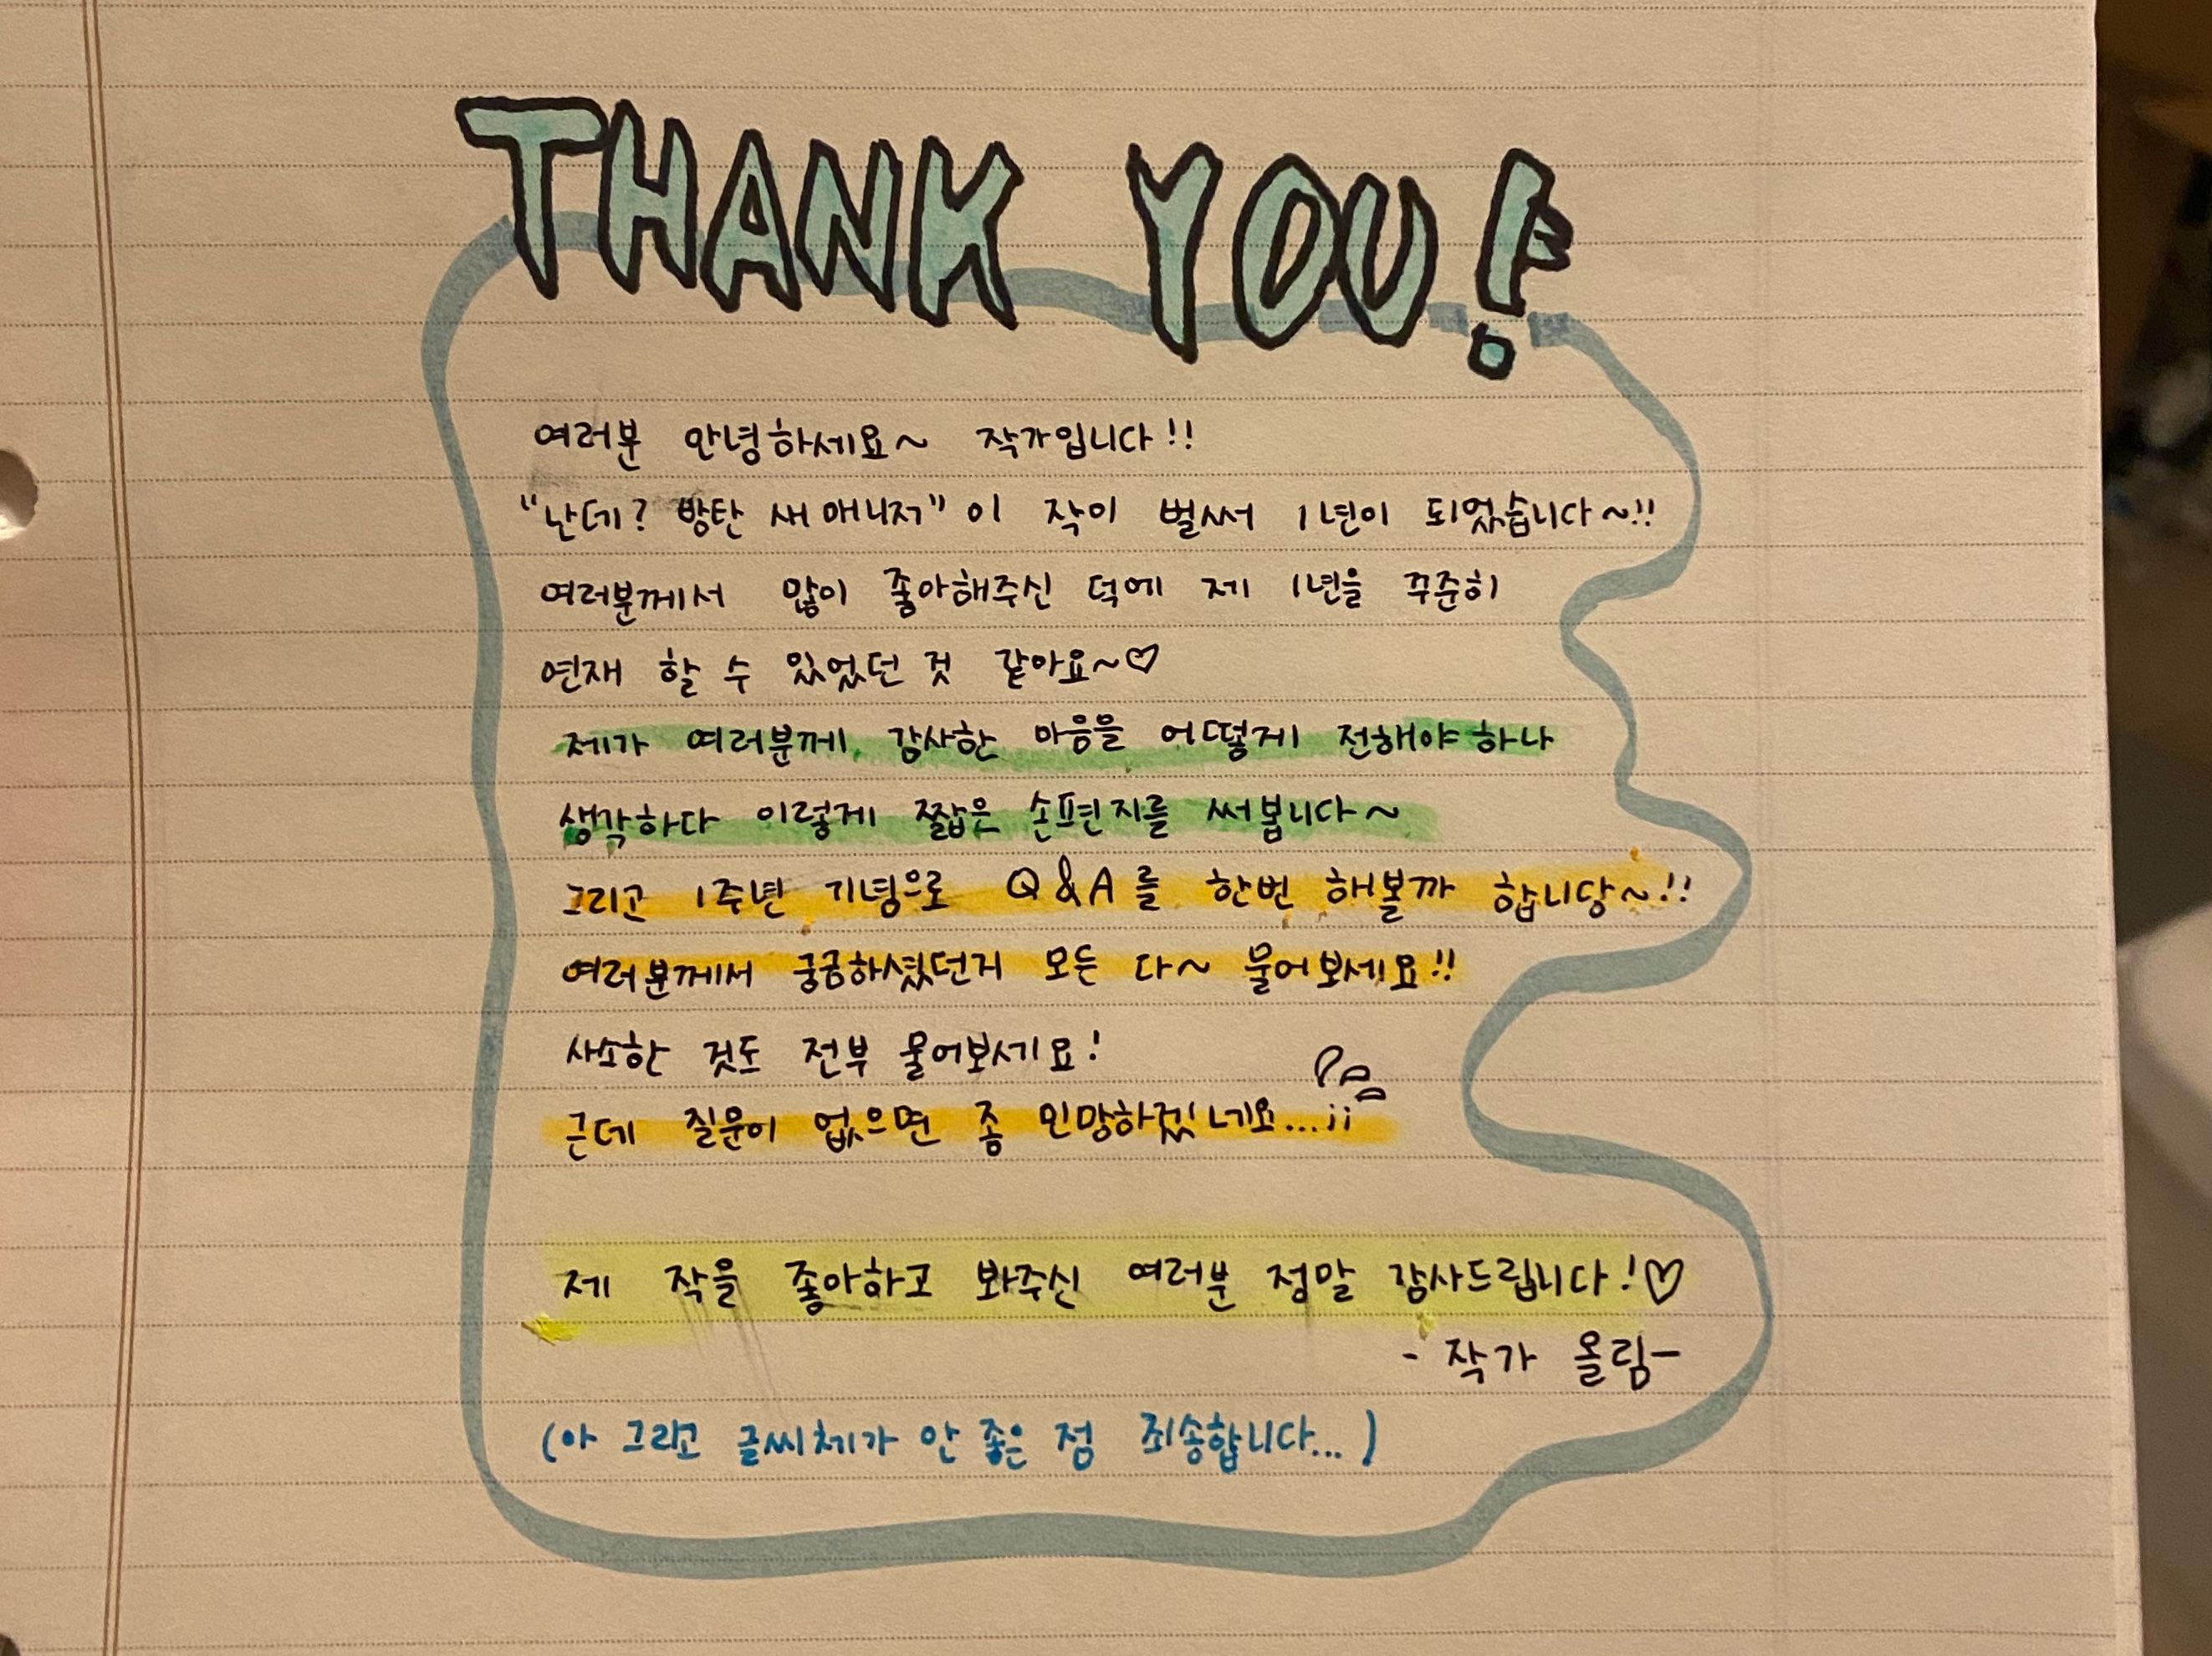 THANK YOU!
여러분 안녕하세요~ 작가입니다!!
"난데? 방탄 새 매니저" 이 작이 벌써 1년이 되었습니다~!!
여러분께서 많이 좋아해주신 덕에 제 1년을 꾸준히
연재 할 수 있었던 것 같아요~♡
제가 여러분께 감사한 마음을 어떻게 전해야 하나
생각하다 이렇게 짧은 손편지를 써봅니다~
그리고 1주년 기념으로 Q&A를 한번 해볼까 합니당~!!
여러분께서 궁금하셨던거 모든 다~ 물어보세요!!
사소한 것도 전부 물어보세요!
근데 질문이 없으면 좀 민망하겠네요...;;
제 작을 좋아하고 봐주신 여러분 정말 감사드립니다!♡
- 작가 올림-
(아 그리고 글씨체가 안 좋은 점 죄송합니다...)